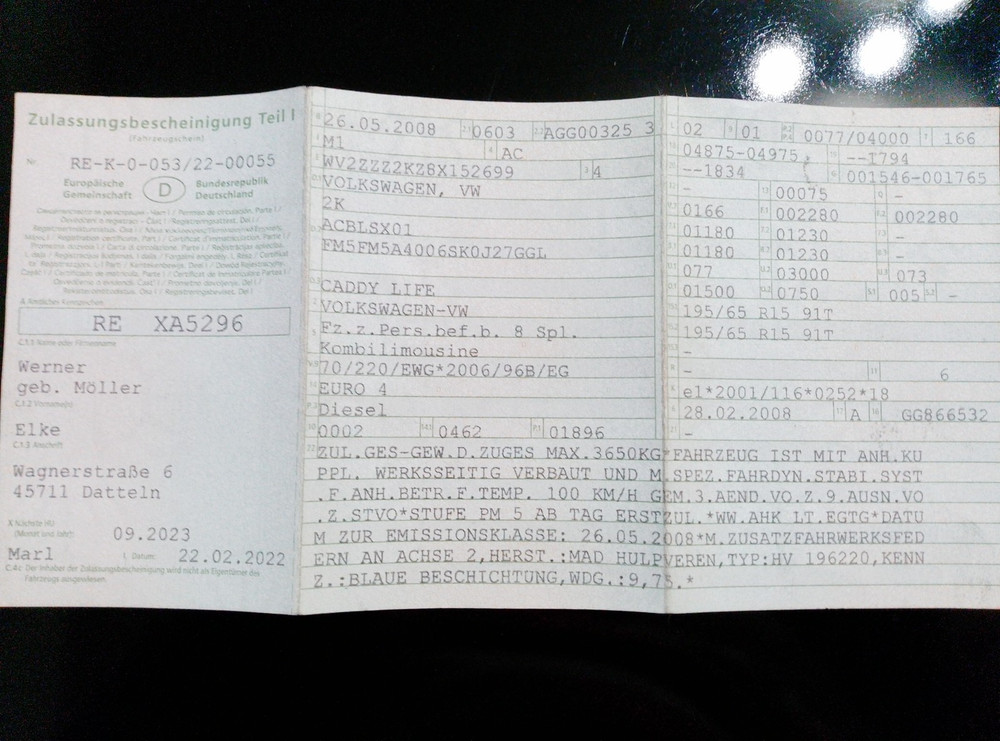 Zulassungsbescheinigung Teil I
(Fahrzeugschein)
Nr. RE-K-0-053/22-00055
Europäische Gemeinschaft D Bundesrepublik Deutschland
A Amtliches Kennzeichen
RE XA5296
C.1.1 Name oder Firmenname
Werner
geb. Möller
C.1.2 Vorname(n)
Elke
C.1.3 Anschrift
Wagnerstraße 6
45711 Datteln
X Nächste HU
(Monat und Jahr) 09.2023
Marl I, Datum: 22.02.2022
C.4c Der Inhaber der Zulassungsbescheinigung wird nicht als Eigentümer des
Fahrzeugs ausgewiesen.
26.05.2008 0603 AGG00325 3
M1 AC
WV2ZZZ2KZ8X152699 4
VOLKSWAGEN, VW
2K
ACBLSX01
FM5FM5A4006SK0J27GGL
CADDY LIFE
VOLKSWAGEN-VW
Fz.z.Pers.bef.b. 8 Spl.
Kombilimousine
70/220/EWG*2006/96B/EG
EURO 4
Diesel
0002 0462 01896
02 01 0077/04000 166
04875-04975 --1794
--1834 001546-001765
- 00075 -
0166 002280 002280
01180 01230 -
01180 01230 -
077 03000 073
01500 0750 005 -
195/65 R15 91T
195/65 R15 91T
-
- 6
e1*2001/116*0252*18
28.02.2008 A GG866532
-
ZUL.GES-GEW.D.ZUGES MAX.3650KG*FAHRZEUG IST MIT ANH.KU
PPL. WERKSSEITIG VERBAUT UND M.SPEZ.FAHRDYN.STABI.SYST
.F.ANH.BETR.F.TEMP. 100 KM/H GEM.3.AEND.VO.Z.9.AUSN.VO
.Z.STVO*STUFE PM 5 AB TAG ERSTZUL.*WW.AHK LT.EGTG*DATU
M ZUR EMISSIONSKLASSE: 26.05.2008*M.ZUSATZFAHRWERKSFED
ERN AN ACHSE 2,HERST.:MAD HULPVEREN,TYP:HV 196220,KENN
Z.:BLAUE BESCHICHTUNG,WDG.:9,75.*